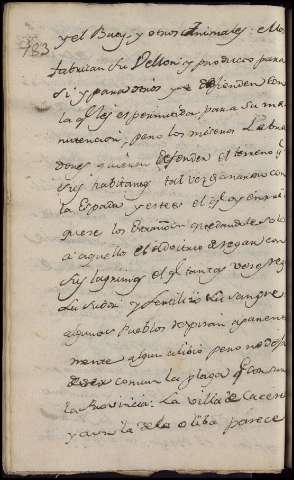 183
y el Buey, y otros Animales: ellos
fabrican su Vellon, y producen para
si y para otros y se defienden con
la q.e les es permitida para su ma
nutencion, pero los miseros Labra
dores quieren defender el terreno q.e
sus habitantes tal vez ganaron con
la Espada y este es el q.e oy enrri
quece los Estraños, quedandole solo
a aquellos el de regar con
sus lagrimas el q.e tantas veces regó
su sudor, y fertilizó su sangre
algunos Pueblos respiran aparente
mente algun alivio pero no deja
de ser comun la plaga q.e consume
la Provincia. La villa de Caceres
y aun la de la Oliba parece